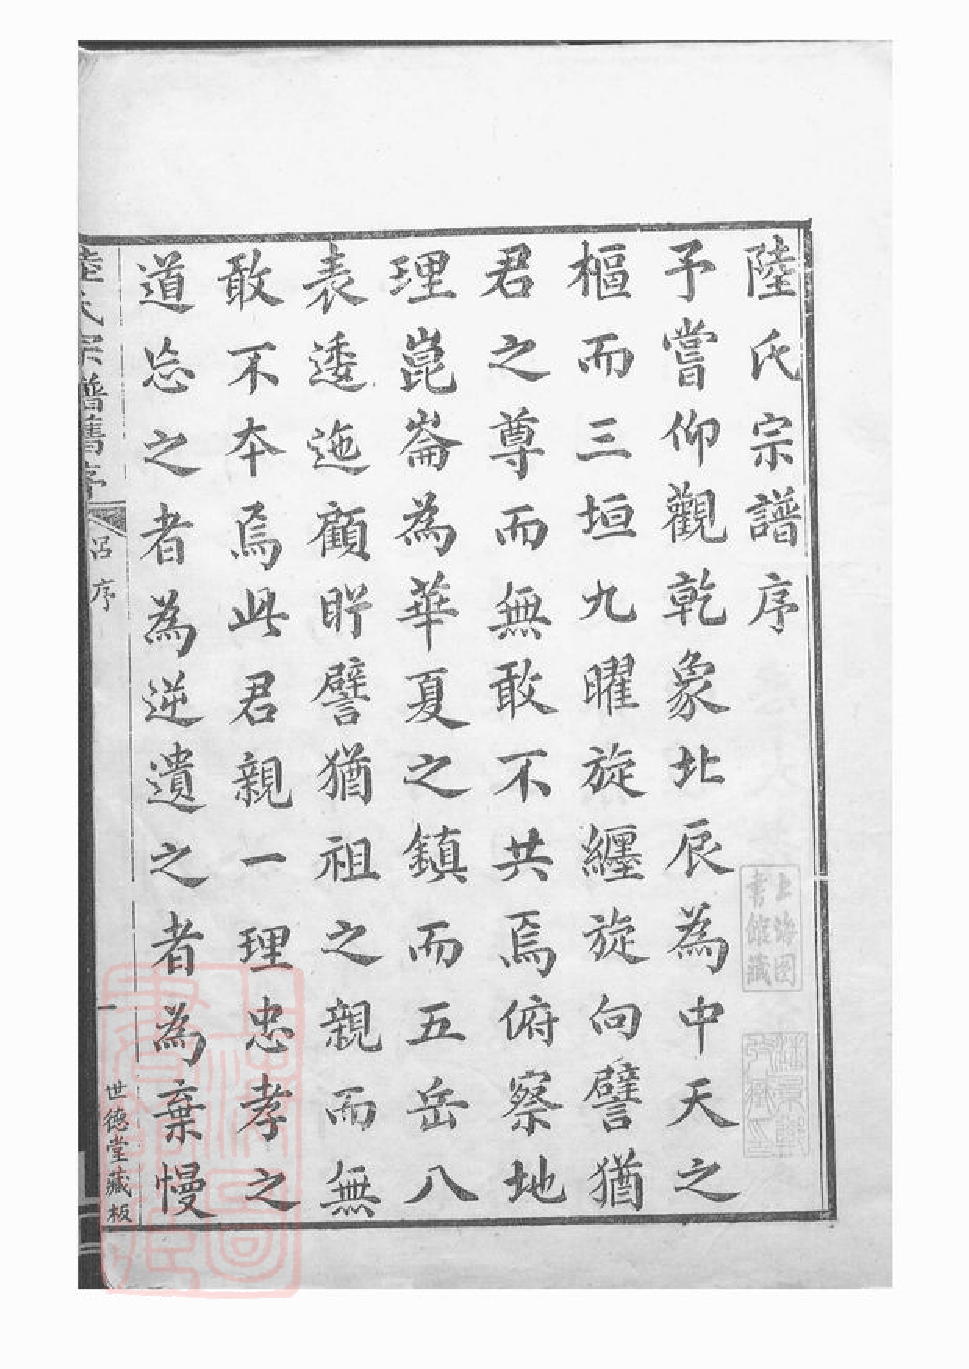 陸氏宗譜序
予嘗仰觀乾象北辰為中天之
樞而三垣九曜旋纏旋向譬猶
君之尊而無敢不共焉俯察地
理崑崙為華夏之鎮而五岳八
表逶迤顧盻譬猶祖之親而無
敢不本焉此君親一理忠孝之
道忘之者為逆遺之者為棄慢
陸氏宗譜舊序
呂序
一
世德堂藏板
上海圖
書館藏